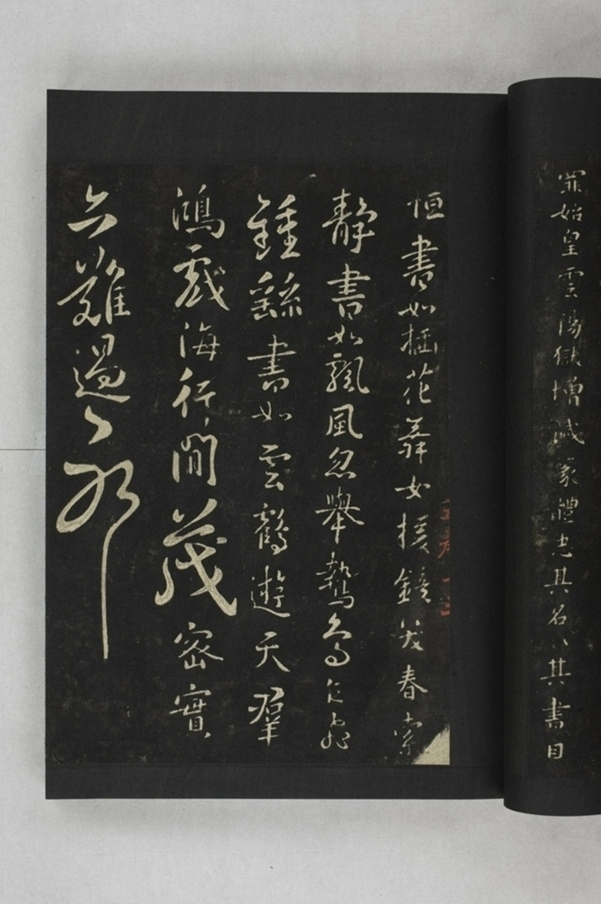 罪始皇雲陽獄增減篆體去其名其書目
恒書如插花舞女援鏡笑春索
靜書如飄風忽舉鷙鳥乍飛
鍾繇書如雲鶴遊天羣
鴻戲海行間茂密實
亦難過之耶